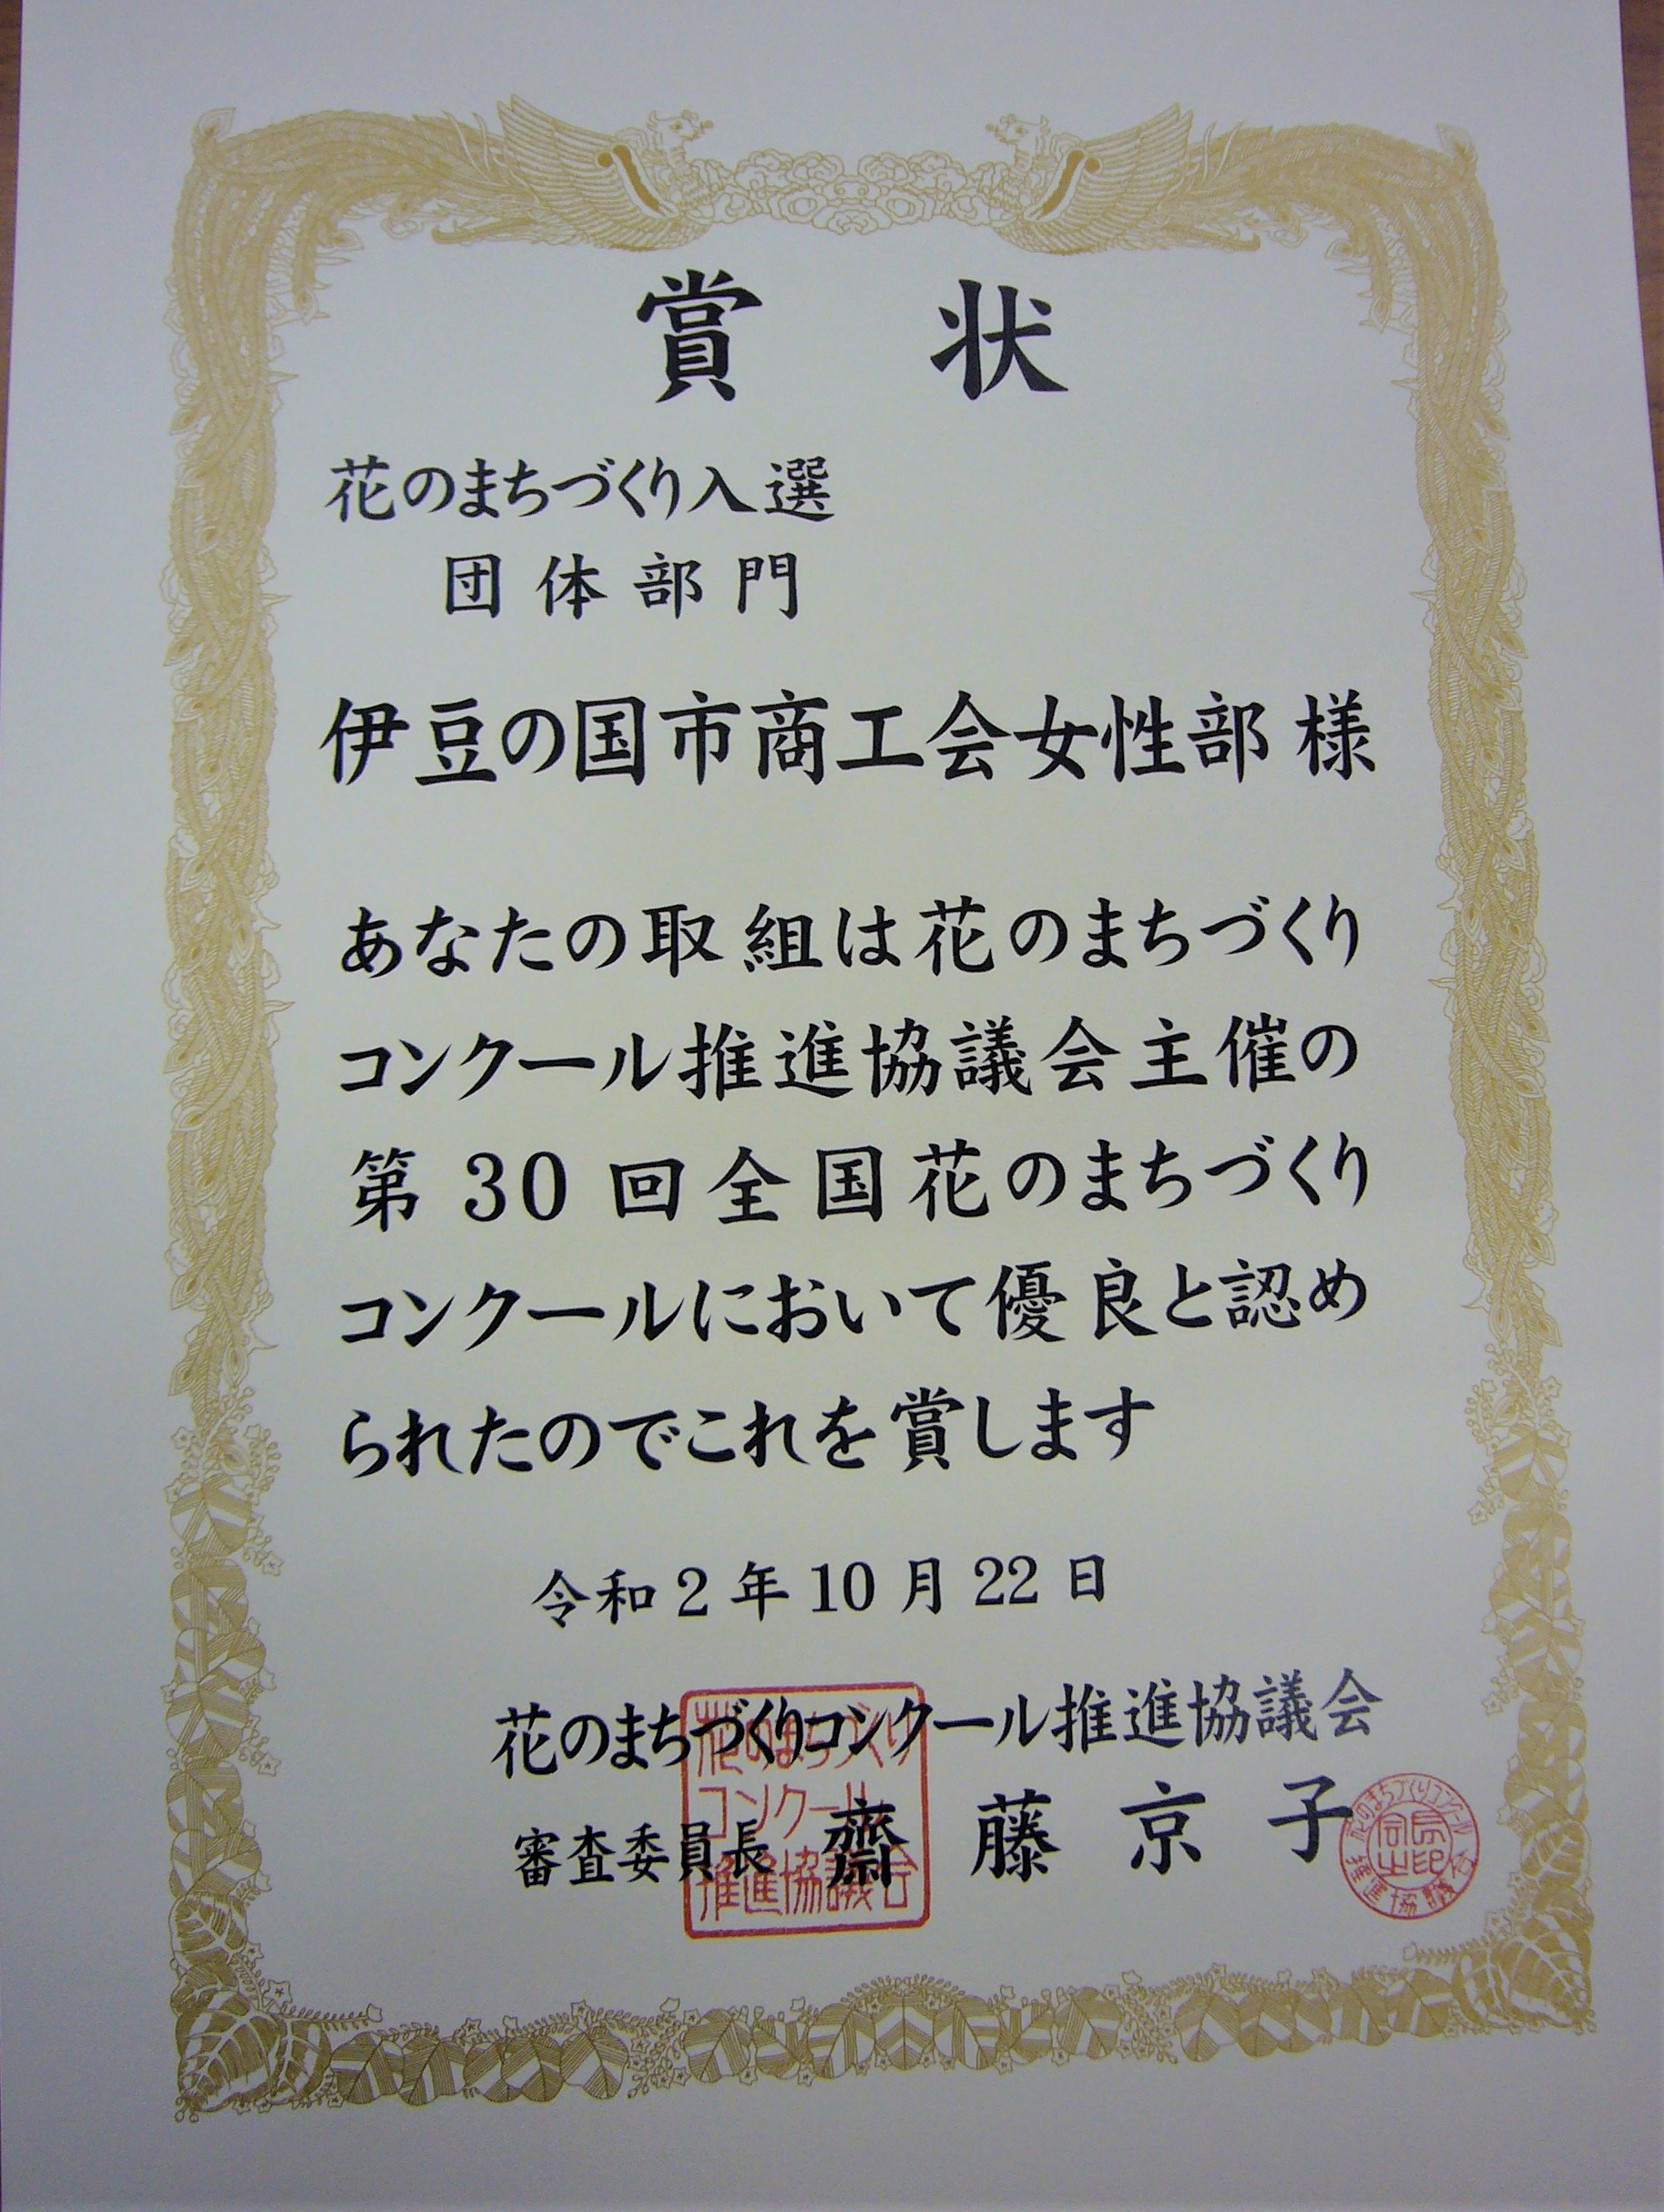 賞状
花のまちづくり入選
団体部門
伊豆の国市商工会女性部 様
あなたの取組は花のまちづくり
コンクール推進協議会主催の
第30回全国花のまちづくり
コンクールにおいて優良と認め
られたのでこれを賞します
令和2年10月22日
花のまちづくりコンクール推進協議会
審査委員長 齋藤京子
花のまちづくり
コンクール
推進協議会